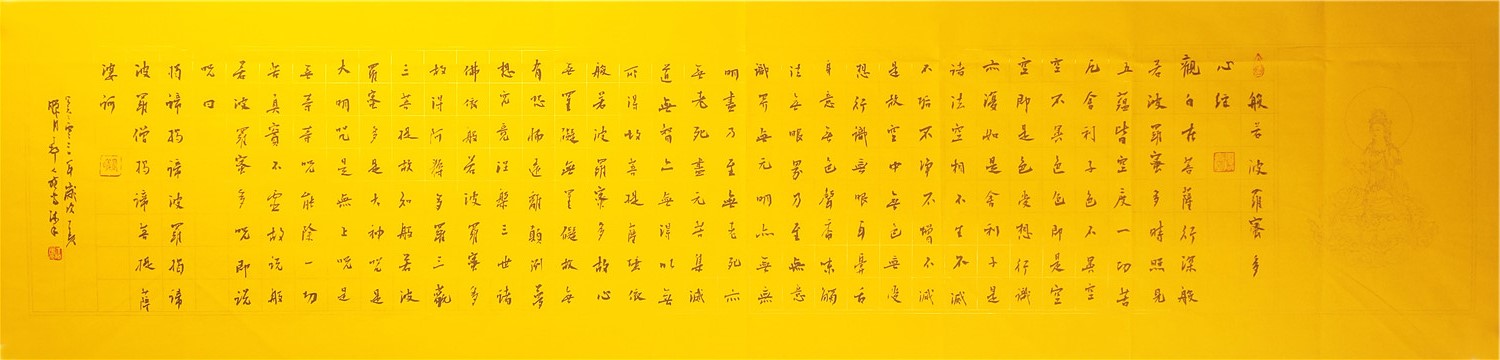 般若波羅蜜多
心經
觀自在菩薩行深般
若波羅蜜多時照見
五蘊皆空度一切苦
厄舍利子色不異空
空不異色色即是空
空即是色受想行識
亦復如是舍利子是
諸法空相不生不滅
不垢不淨不增不減
是故空中無色無受
想行識無眼耳鼻舌
身意無色聲香味觸
法無眼界乃至無意
識界無无明亦無無
明盡乃至無老死亦
無老死盡无苦集滅
道無智亦無得以無
所得故菩提薩埵依
般若波羅蜜多故心
無罣礙無罣礙故無
有恐怖遠離顛倒夢
想究竟涅槃三世諸
佛依般若波羅蜜多
故得阿耨多羅三藐
三菩提故知般若波
羅蜜多是大神咒是
大明咒是無上咒是
無等等咒能除一切
苦真實不虛故說般
若波羅蜜多咒即說
咒曰
揭諦揭諦波羅揭諦
波羅僧揭諦菩提薩
婆訶
年歲次